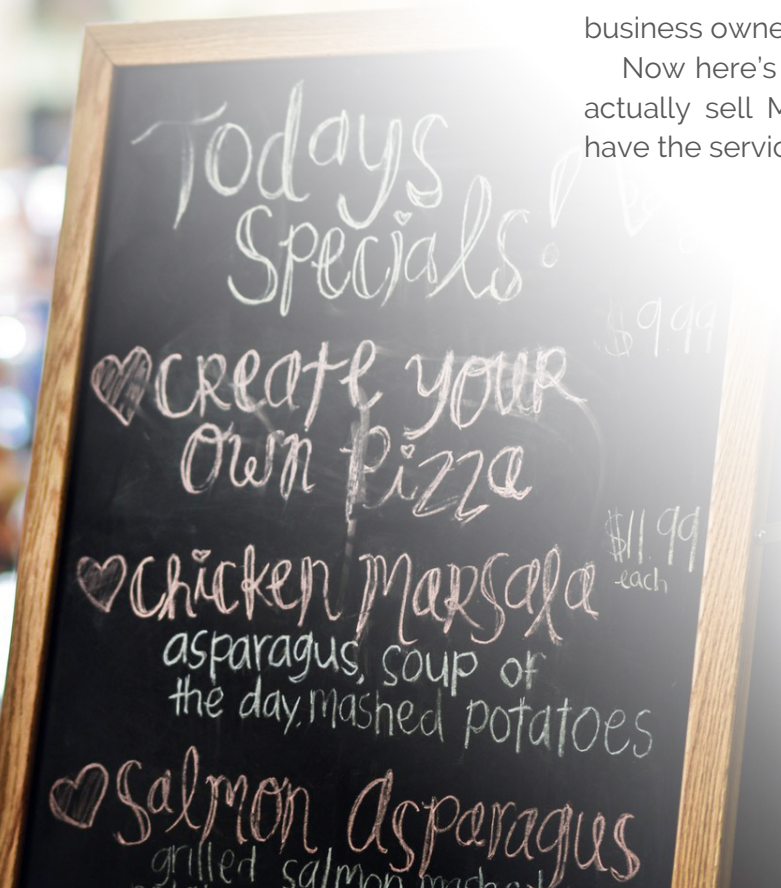 business owne
Now here's
actually sell M
have the servic
Todays
Specials!
$9.99
Create your
own pizza
$11.99
each
Chicken Marsala
asparagus, soup of
the day, mashed potatoes
Salmon Asparagus
grilled salmon mashed